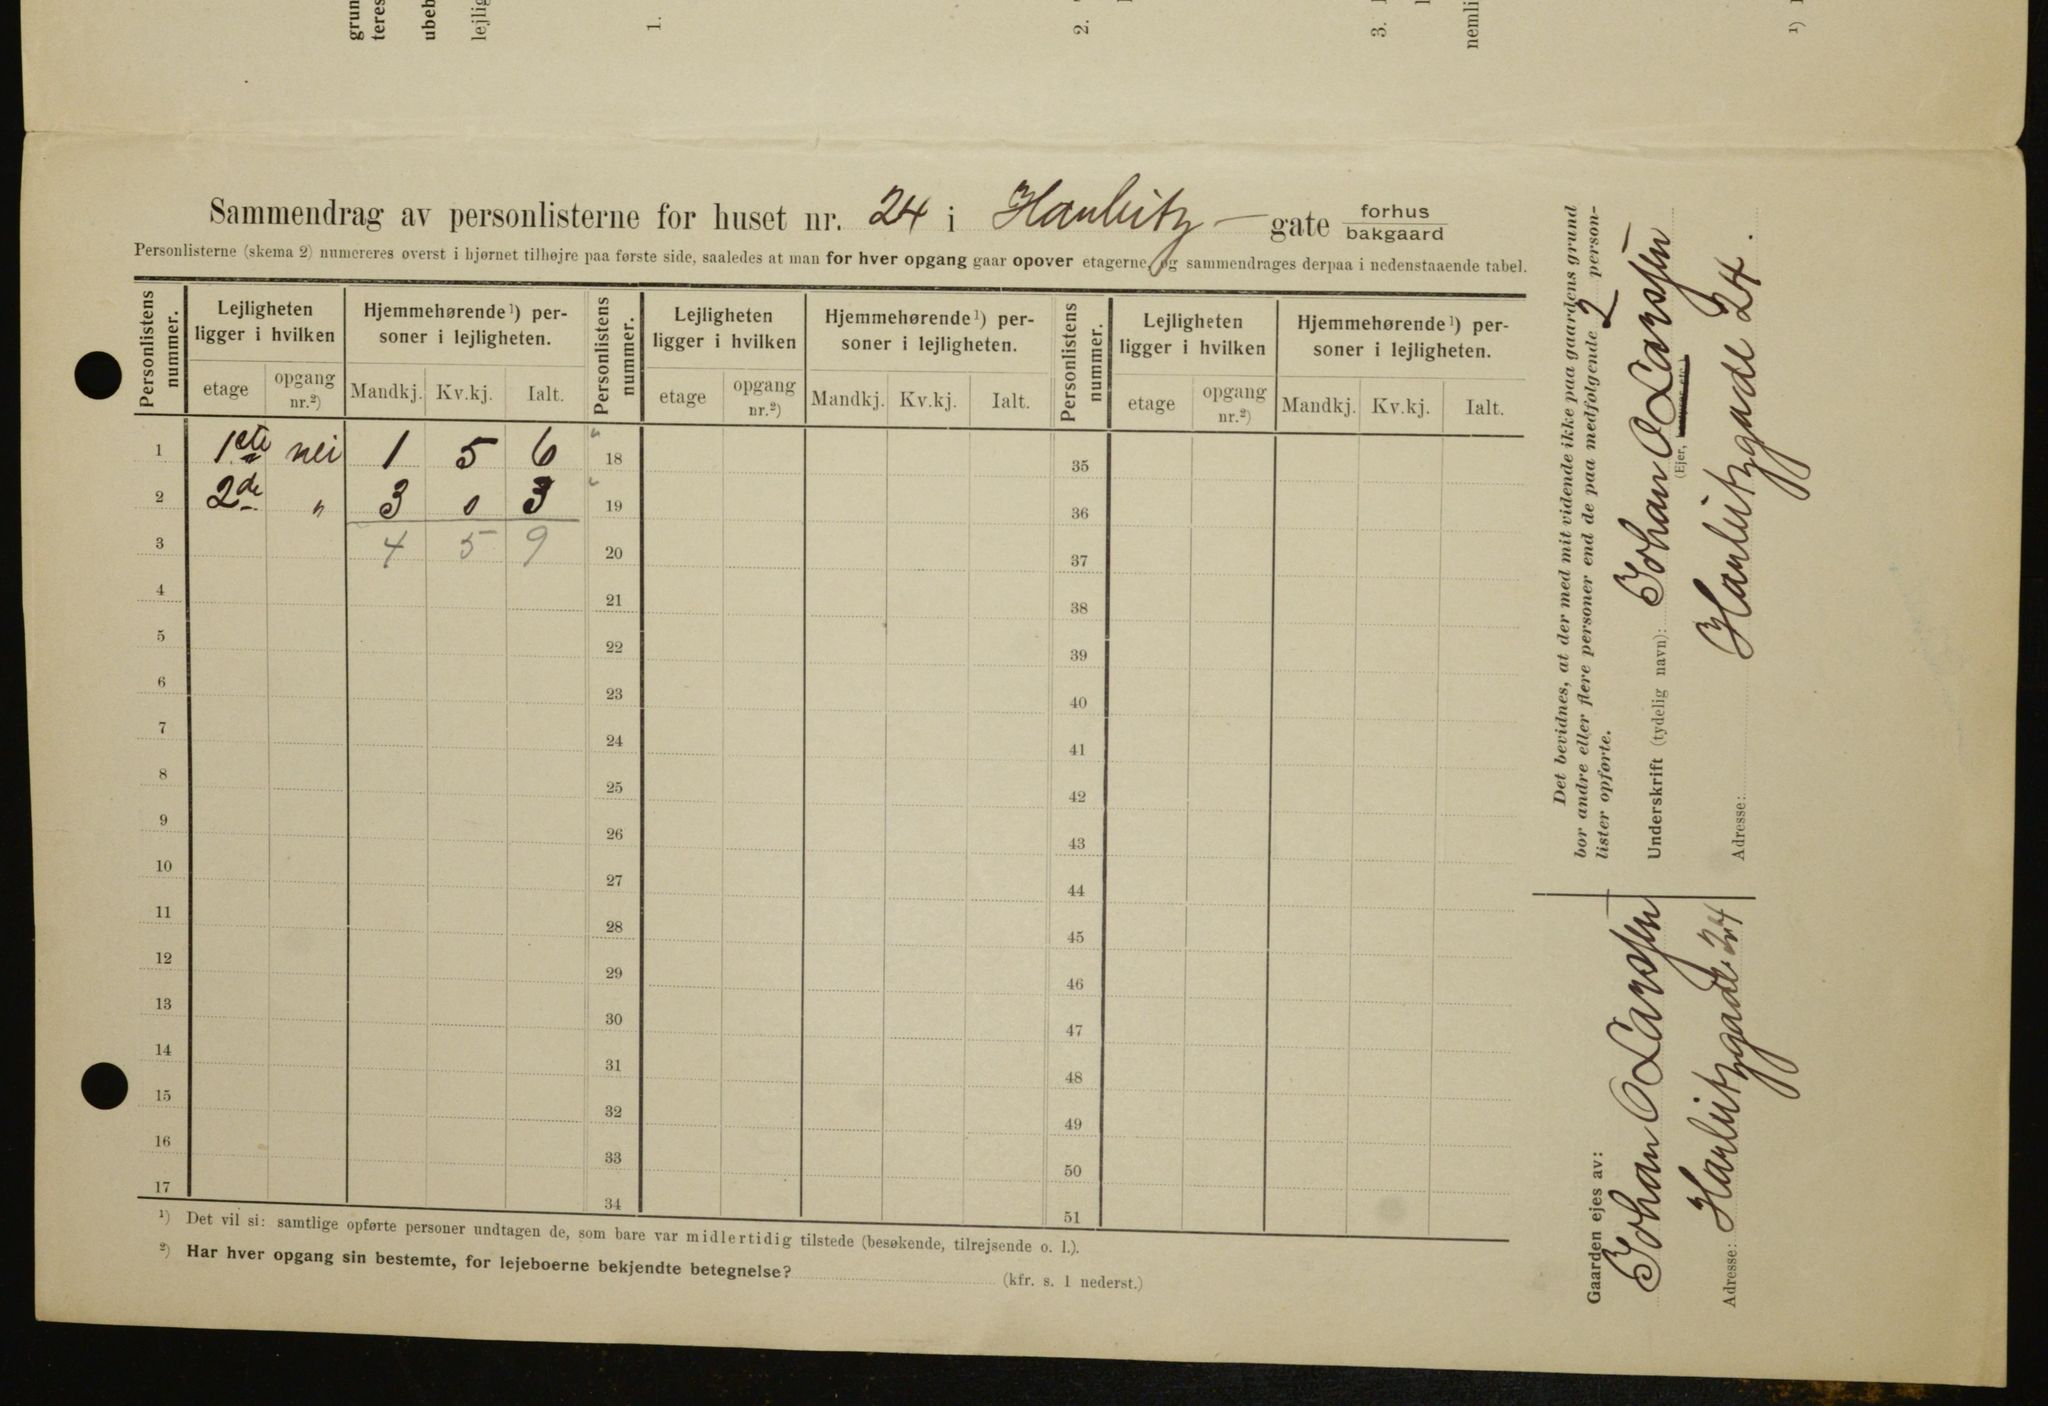 grun
teres
ubeb
lejlig
1.
2.
3.
nemli
¹)
Sammendrag av personlisterne for huset nr. 24 i Hanleitz- gate forhus bakgaard
Personlisterne (skema 2) numereres øverst i hjørnet tilhøjre paa første side, saaledes at man for hver opgang gaar opover etagerne, og sammendrages derpaa i nedenstaaende tabel.
Personlistens nummer. Lejligheten ligger i hvilken Hjemmehørende ¹) personer i lejligheten. Personlistens nummer. Lejligheten ligger i hvilken Hjemmehørende ¹) personer i lejligheten. Personlistens nummer. Lejligheten ligger i hvilken Hjemmehørende ¹) personer i lejligheten.
etage opgang nr.²) Mandkj. Kv.kj. Ialt. etage opgang nr.²) Mandkj. Kv.kj. Ialt. etage opgang nr.²) Mandkj. Kv.kj. Ialt.
1 1ste nei 1 5 6 18 35
2 2de " 3 0 3 19 36
3 4 5 9 20 37
4 21 38
5 22 39
6 23 40
7 24 41
8 25 42
9 26 43
10 27 44
11 28 45
12 29 46
13 30 47
14 31 48
15 32 49
16 33 50
17 34 51
¹) Det vil si: samtlige opførte personer undtagen de, som bare var midlertidig tilstede (besøkende, tilrejsende o. l.).
²) Har hver opgang sin bestemte, for lejeboerne bekjendte betegnelse? (kfr. s. 1 nederst.)
Det bevidnes, at der med mit vidende ikke paa gaardens grund
bor andre eller flere personer end de paa medfølgende 2 person-
lister opførte.
Underskrift (tydelig navn): Johan O Larssen
(Ejer,
Adresse: Hanleitzgade 24.
Gaarden ejes av:
Johan O Larssen
Adresse: Hanleitzgade 24